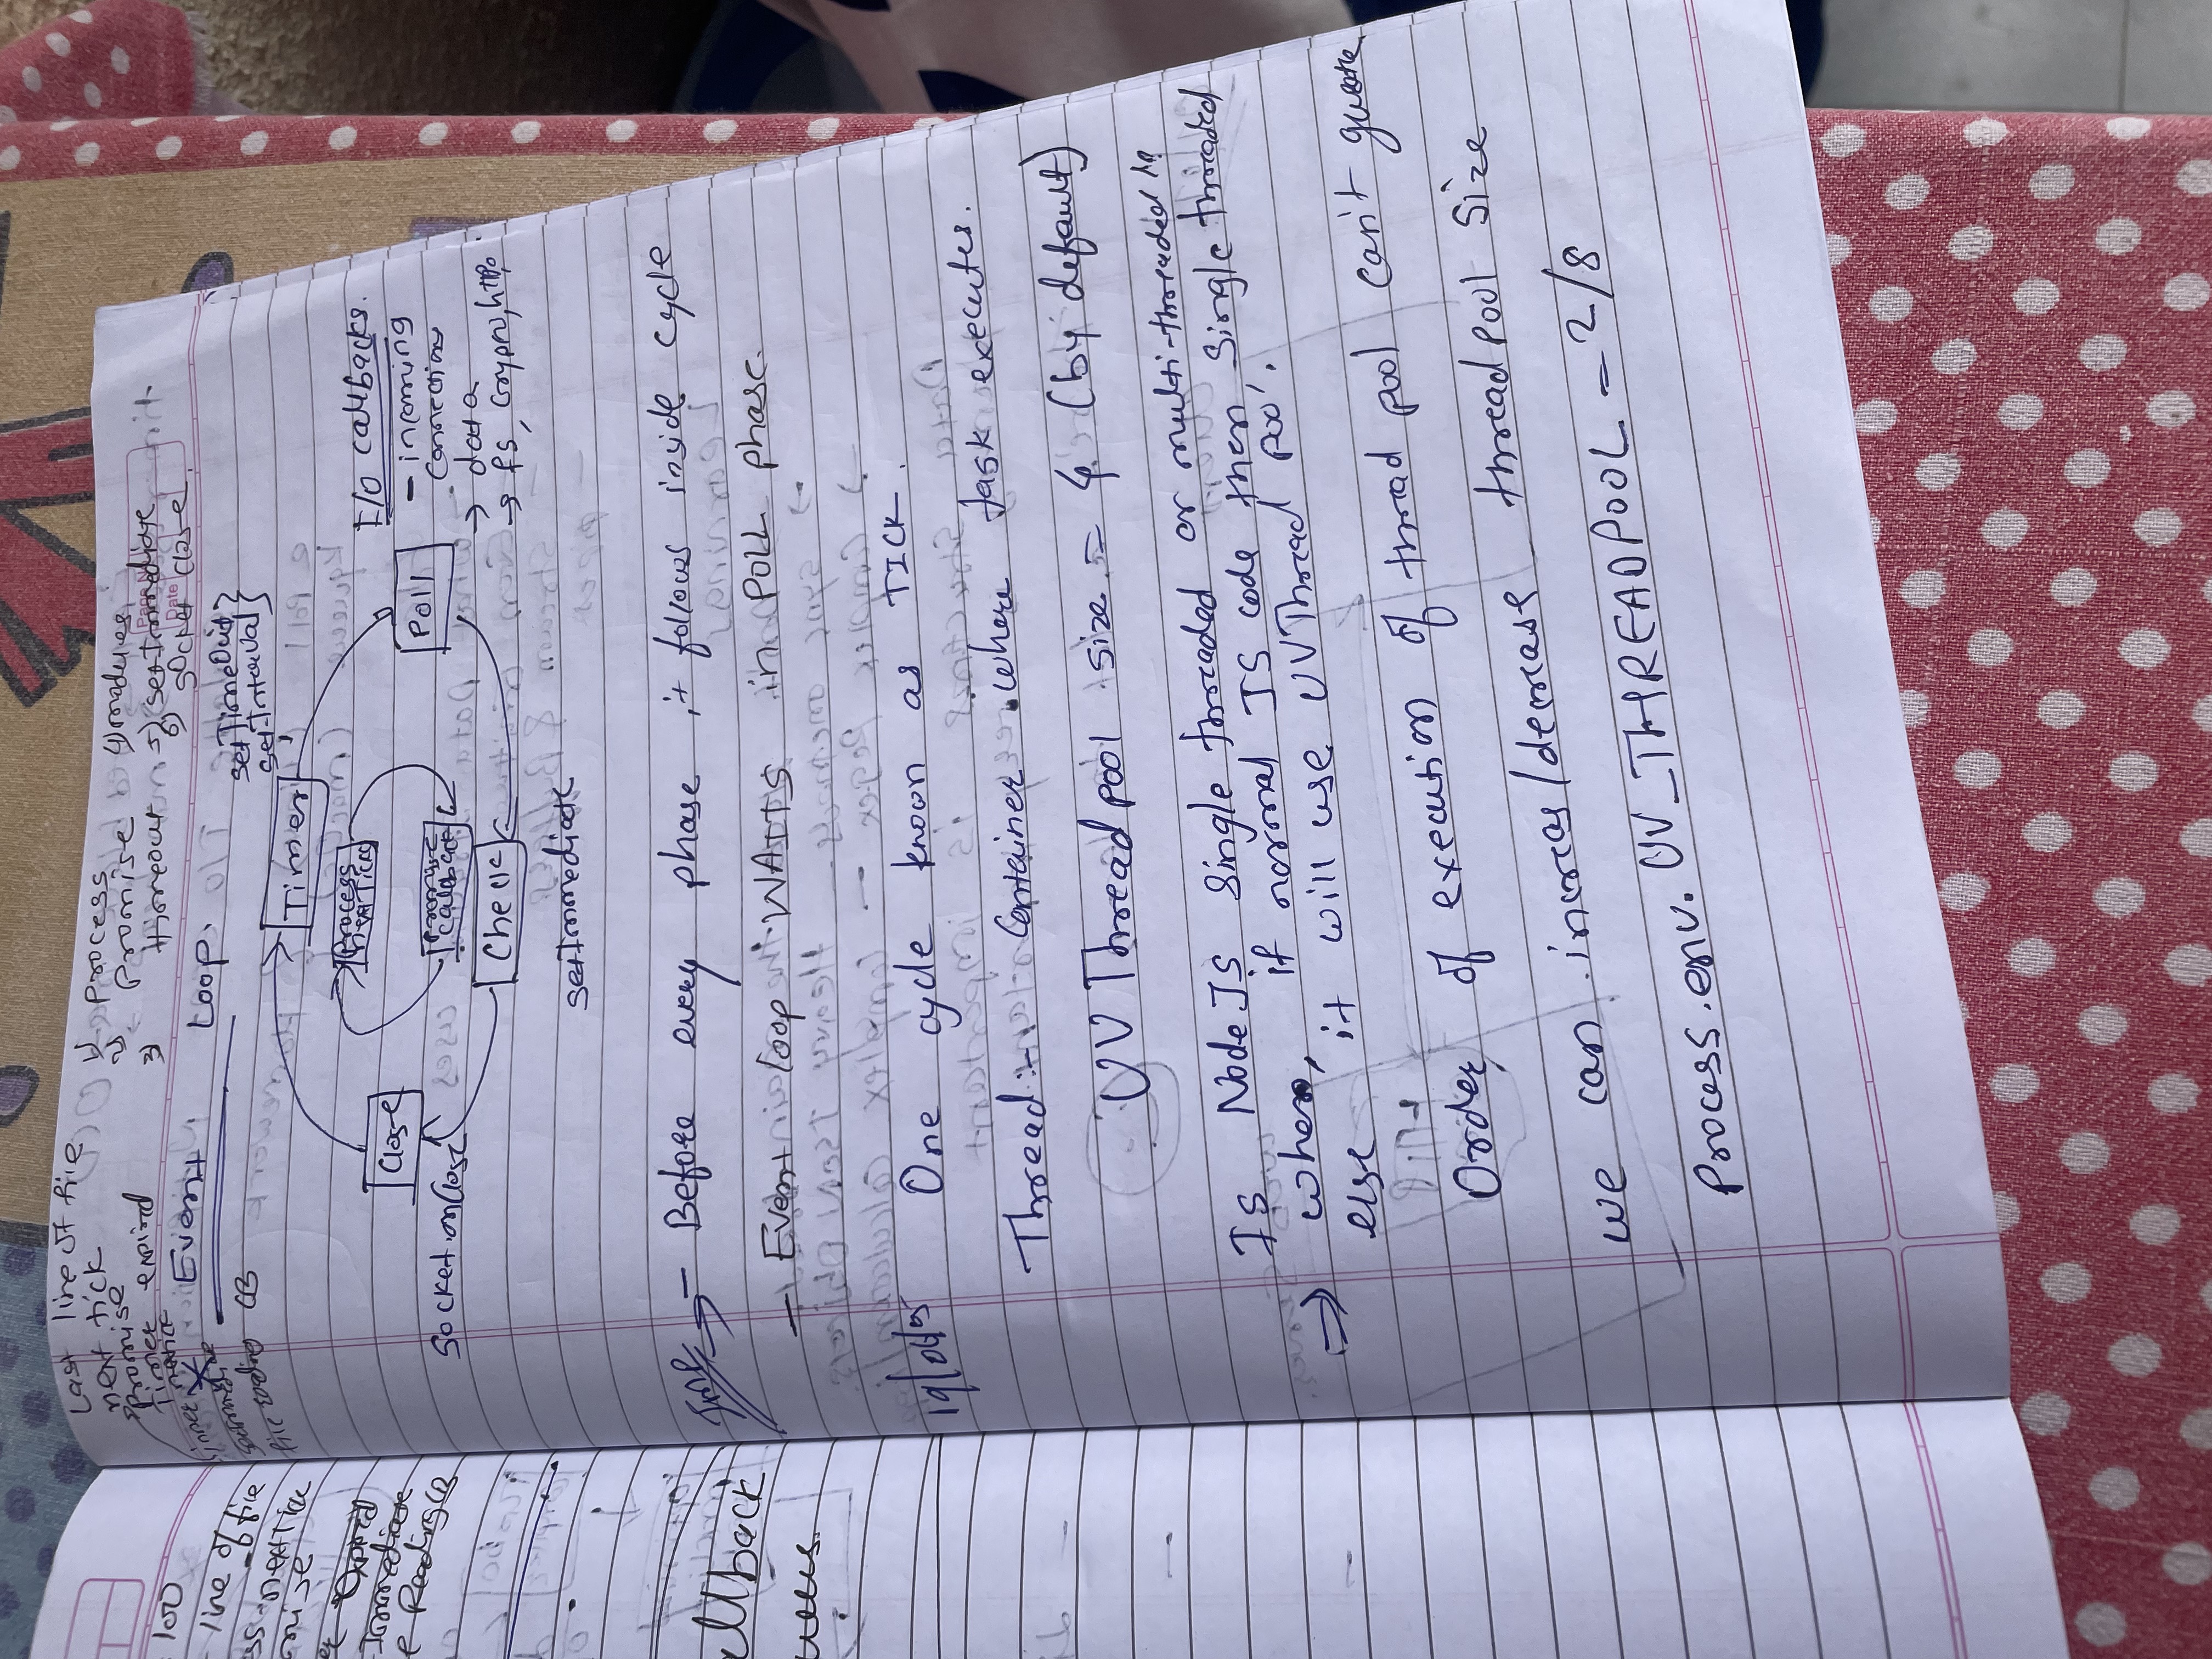 100
line of file
nextTick
Expired
Immediate
Reading CB
allback
Last line of file
next tick
Promise
Timer expired
file reading CB
1) Process
2) Promise
3) timeout
5) setImmediate
6) socket close.
Page No.
Date
Event Loop.
setTimeOut }
setInterval }
Timer
Process
nextTick
Close
Poll
promise
callback
Socket.onClose
Check
setImmediate
I/O callbacks.
- incoming
connections
→ data
→ fs, crypto, http,
Imp → - Before every phase it follows inside cycle
- Event loop WAITS in POLL phase.
One cycle known as TICK.
Thread :- Container where task executes.
UV Thread pool size = 4 (by default)
Is NodeJS Single threaded or multi-threaded
⇒ when, if normal JS code then single threaded
else it will use UV Thread pool.
Order of execution of thread pool can't
we can increas/decrease threadpool size
Process.env.UV_THREADPOOL = 2/8